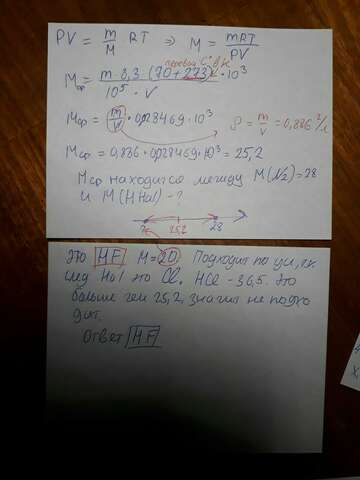 PV = m/M RT ⇒ M = mRT/PV
перевод C° в K
Mср = m · 8,3 · (70 + 273) · 10³ / 10⁵ · V
Mср = m/V · 0,028469 · 10³ ρ = m/V = 0,886 г/л
Mср = 0,886 · 0,028469 · 10³ = 25,2
Mср находится между M(N₂) = 28
и M(HHal) - ?
? 25,2 28
Это HF M = 20. Подходит по усл, т.к.
след Hal это Cl. HCl - 36,5. Это
больше чем 25,2, значит не подхо
дит.
Ответ HF